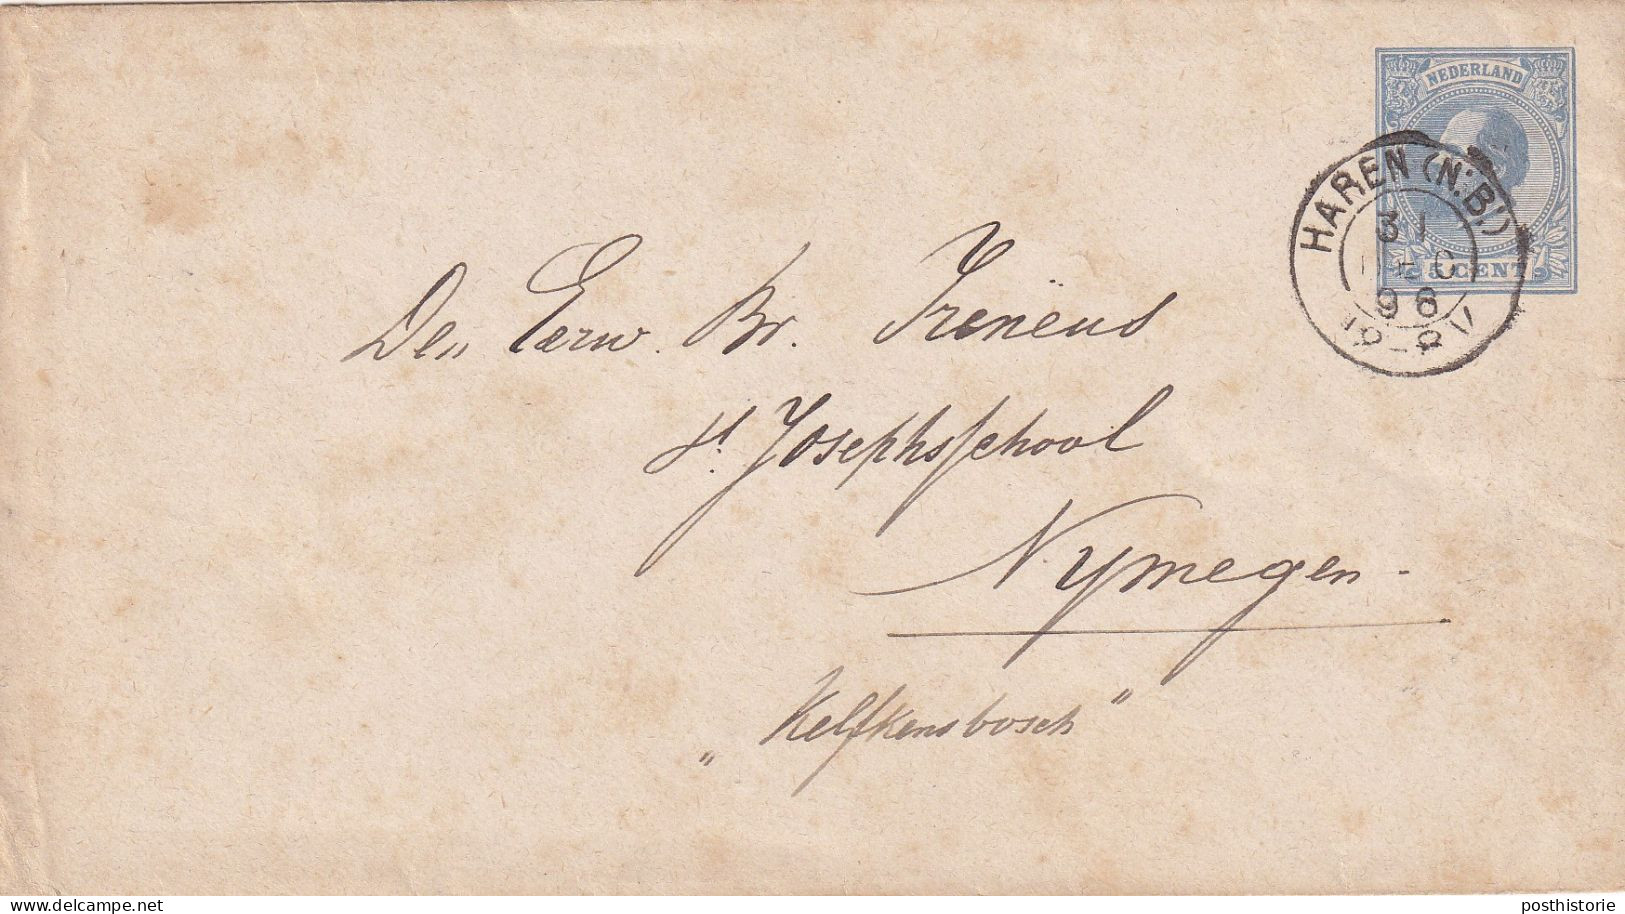 NEDERLAND
5 CENT
HAREN (N:B:)
31
96
Den Eerw. Br. Ireneüs
St. Josephsschool
Nymegen
„Kelfkensbosch"
Delcampe.net
posthistorie